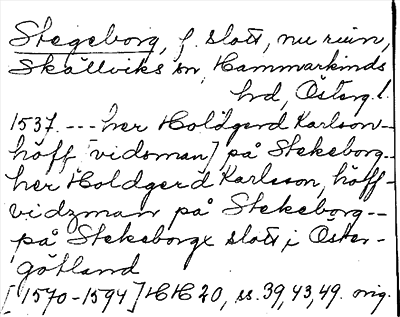 Stegeborg, f. slott, nu ruin,
Skällviks sn, Hammarkinds
hd, Österg.l.
1537. --- her Holdgerd Karlson
höff[vidsman] på Stekeborg--
her Holdgerd Karlsson, höff-
vidzman på Stekeborg--
på Stekeborgx slott i Öster-
götland
[1570-1594] HH 20, ss. 39, 43, 49. orig.